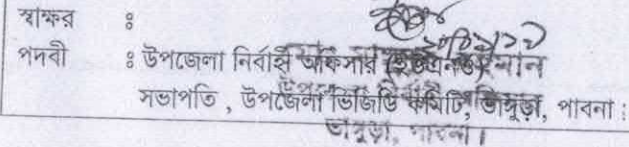 স্বাক্ষর :
পদবী : উপজেলা নির্বাহী অফিসার (ইউএনও)
সভাপতি , উপজেলা ভিজিডি কমিটি, ভাঙ্গুড়া, পাবনা :
ভাঙ্গুড়া, পাবনা।